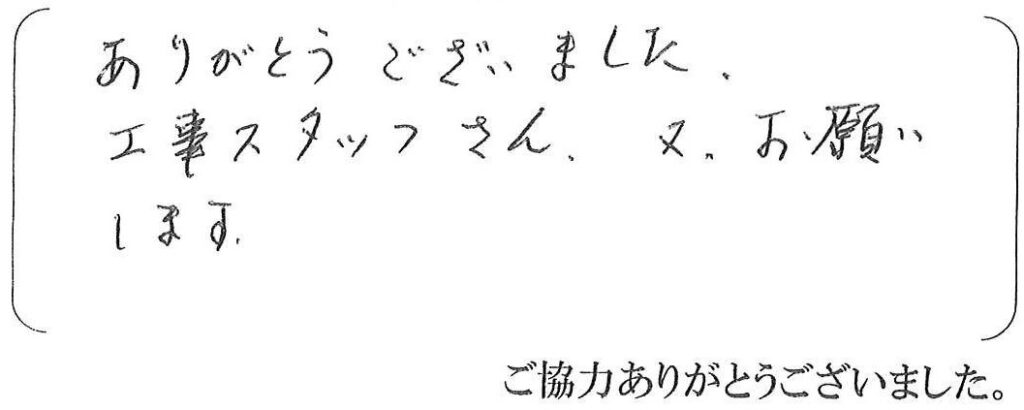 ありがとうございました.
工事スタッフさん. 又、お願い
します.
ご協力ありがとうございました。